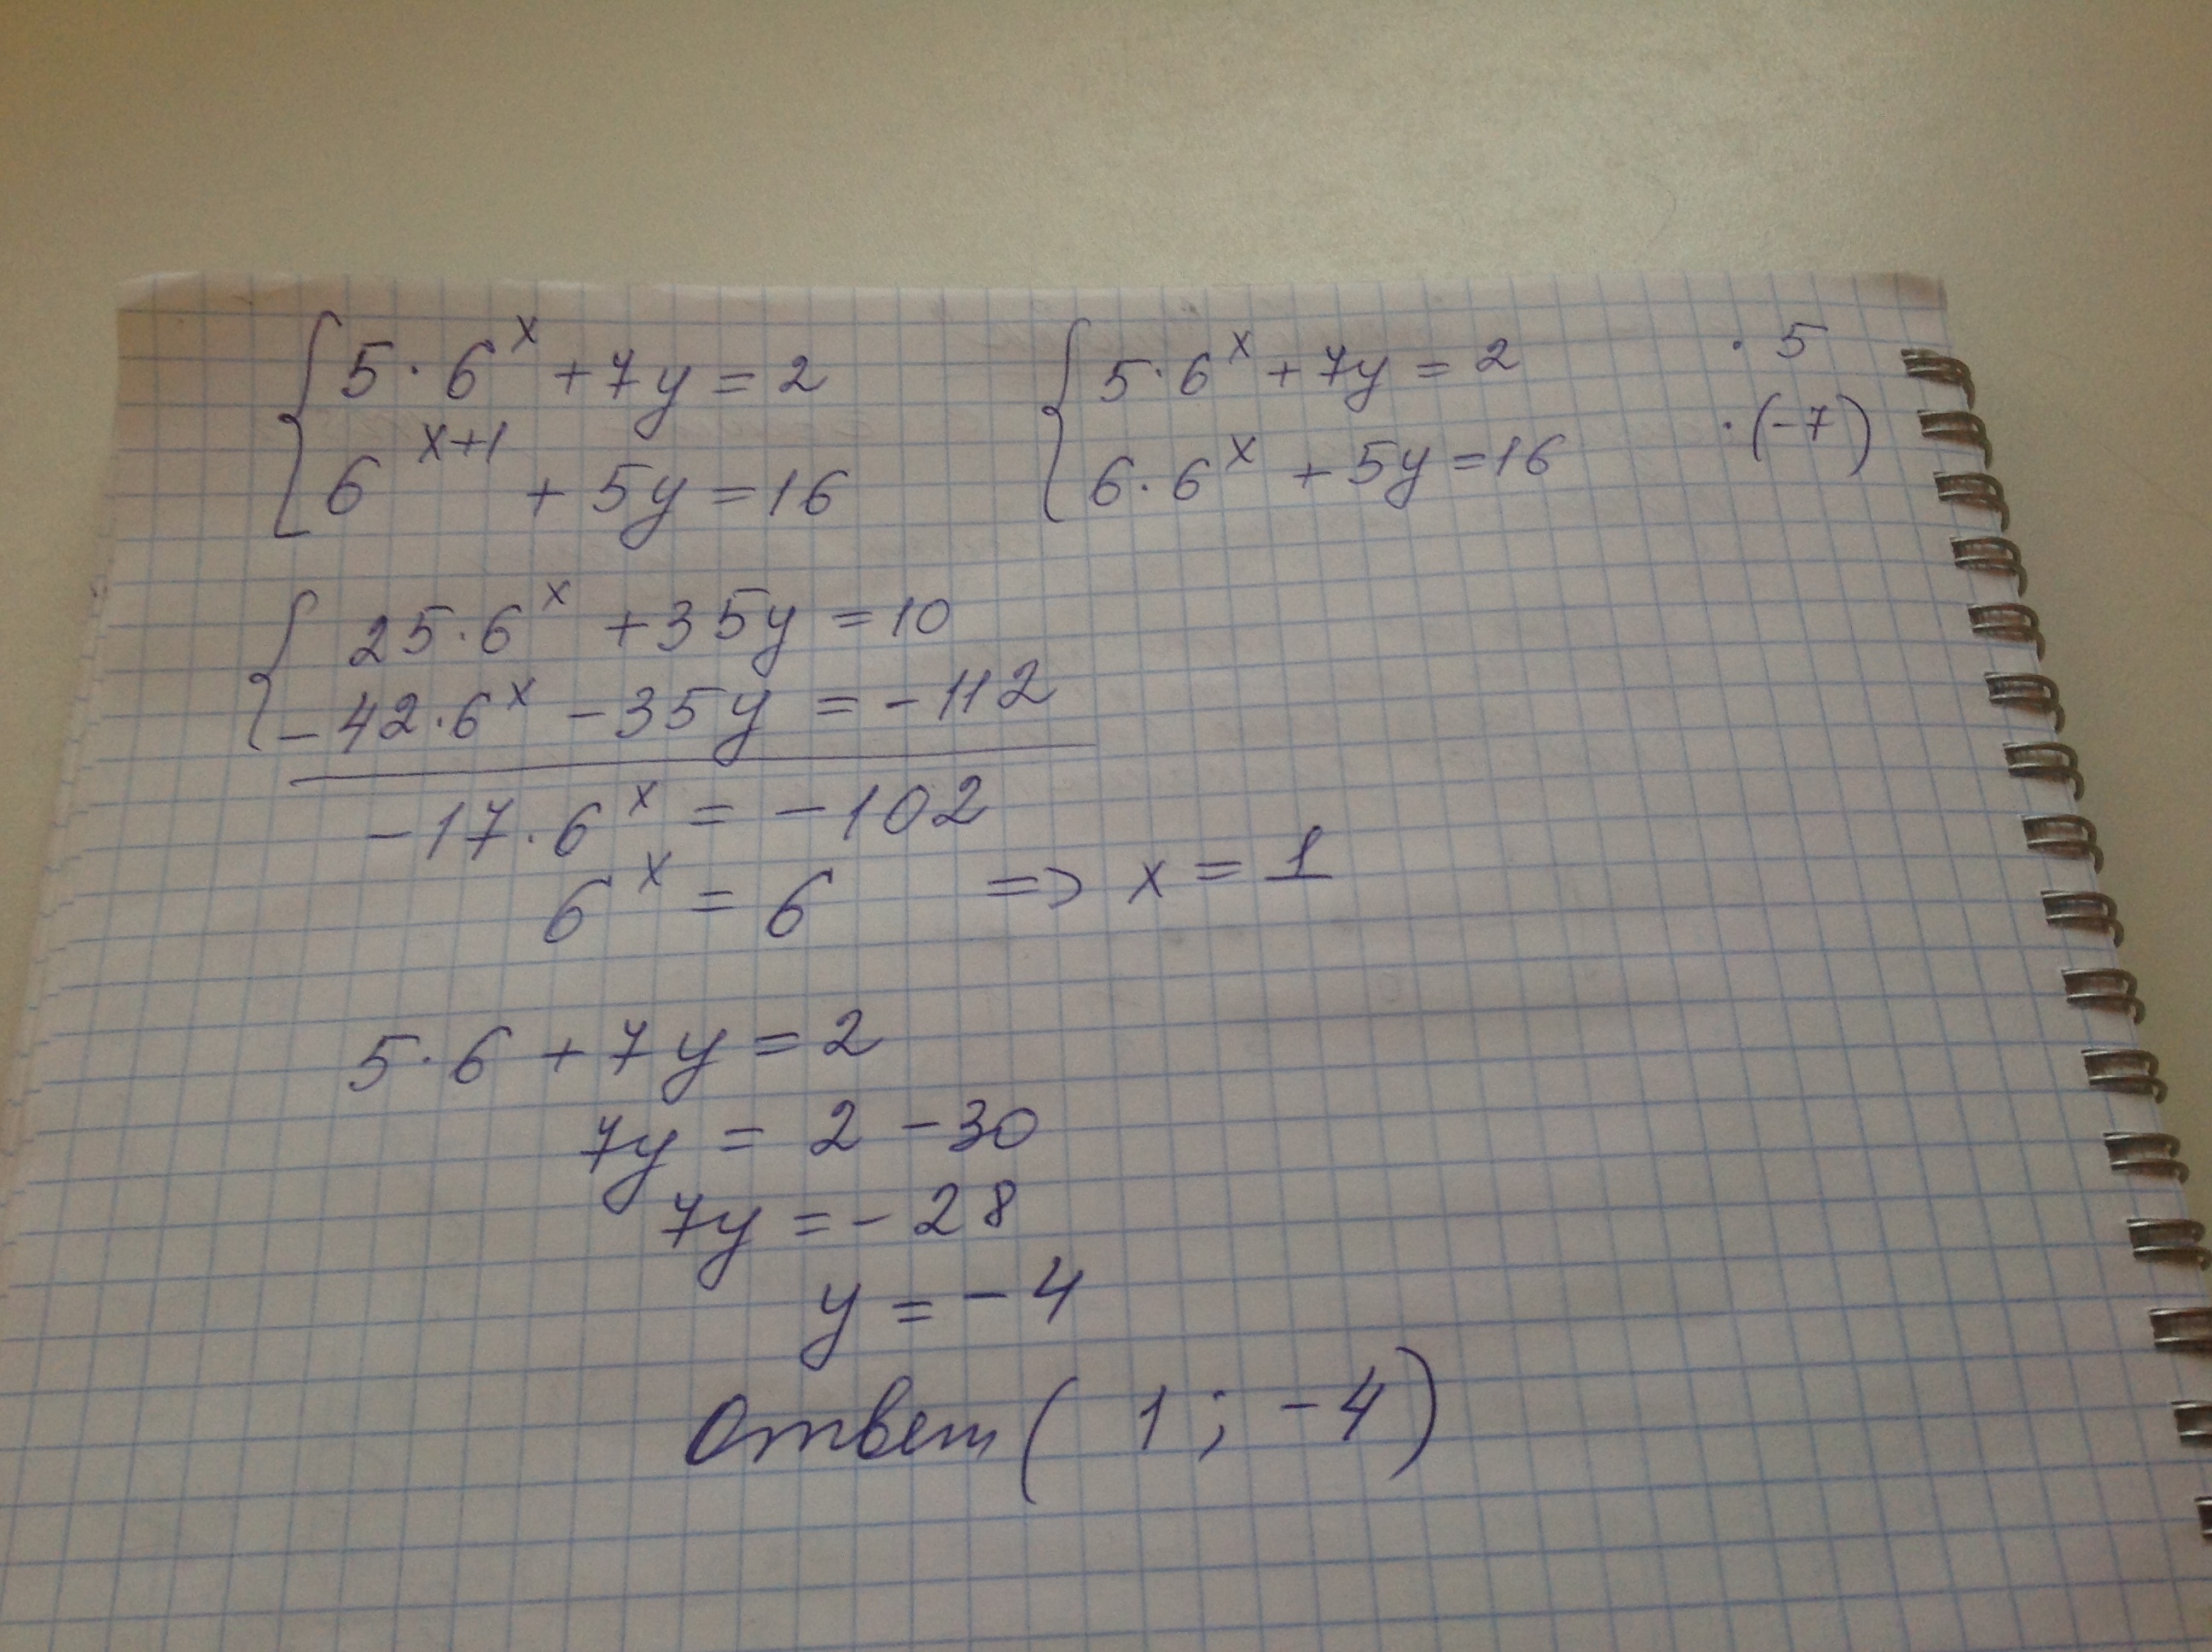 { 5·6^x + 7y = 2
6^(x+1) + 5y = 16
{ 5·6^x + 7y = 2 · 5
6·6^x + 5y = 16 · (-7)
{ 25·6^x + 35y = 10
-42·6^x - 35y = -112
-17·6^x = -102
6^x = 6 => x = 1
5·6 + 7y = 2
7y = 2 - 30
7y = -28
y = -4
Ответ ( 1 ; -4)